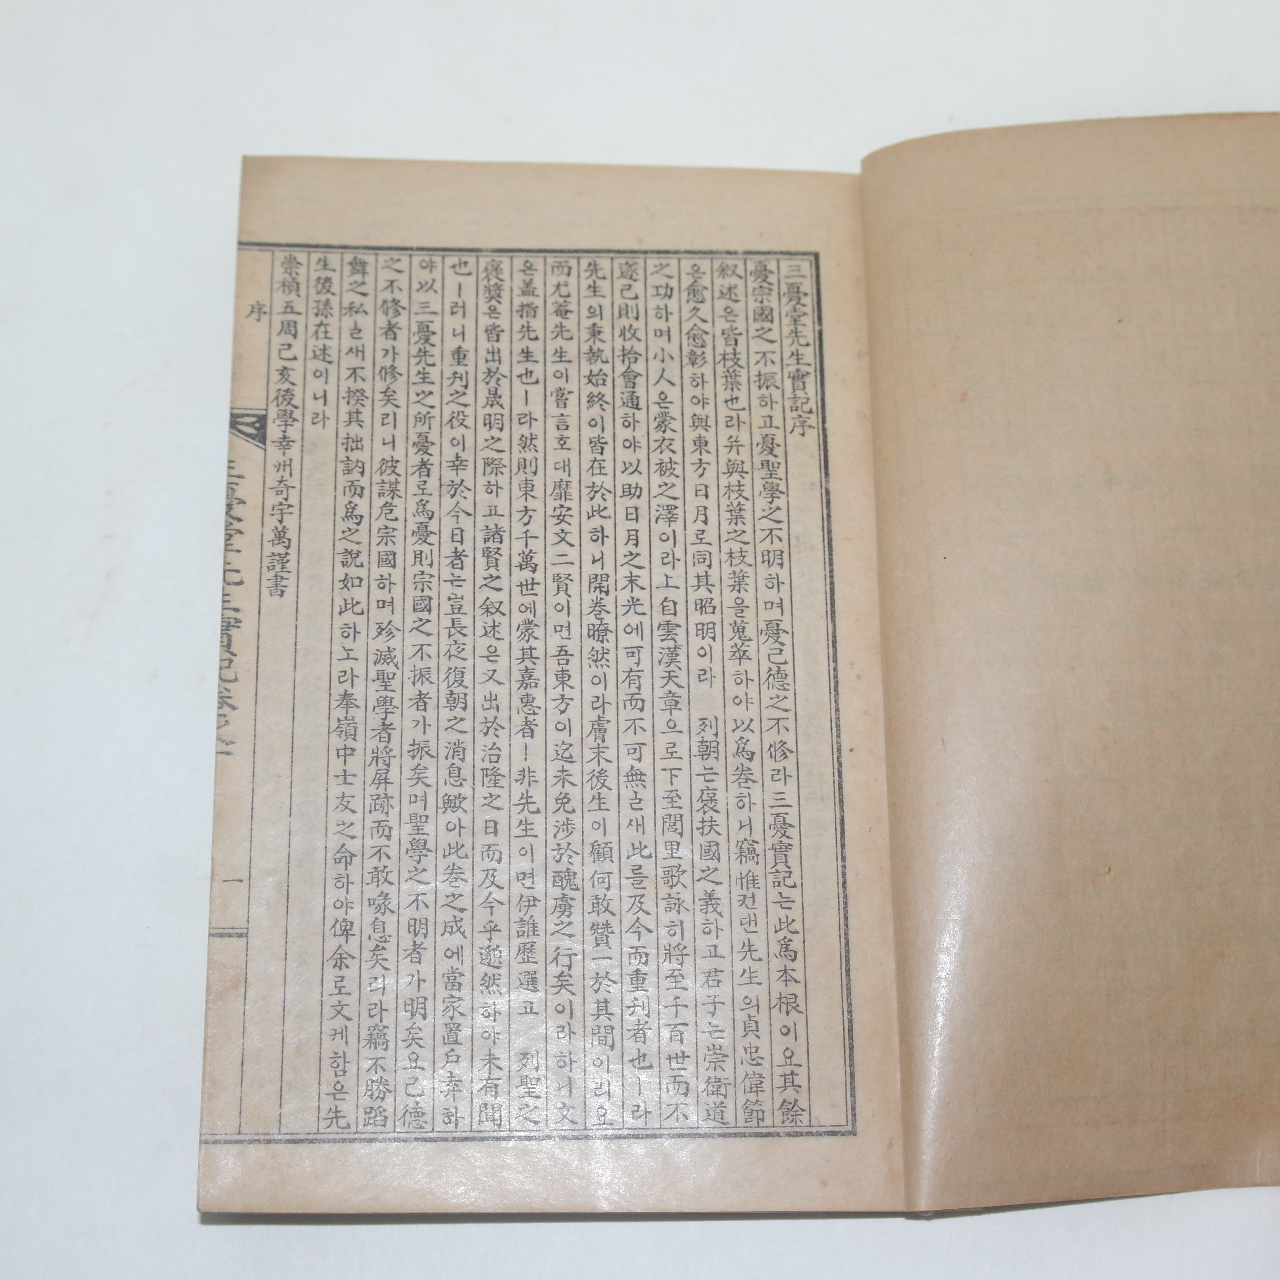 三憂堂先生實記序
憂宗國之不振하고憂聖學之不明하며憂己德之不修라三憂實記는此爲本根이요其餘
叙述은皆枝葉也라弁與枝葉之枝葉을蒐萃하야以爲卷하니竊惟컨댄先生의貞忠偉節
은愈久愈彰하야與東方日月로同其昭明이라 列朝는褒扶國之義하고君子는崇衛道
之功하며小人은蒙衣被之澤이라上自雲漢天章으로下至閭里歌詠히將至千百世而不
邃己則收拾會通하야以助日月之末光에可有而不可無른새此를及今而重刋者也ㅣ라
先生의秉執始終이皆在於此하니開卷瞭然이라膚末後生이顧何敢贊一於其間이리요
而尤菴先生이嘗言호대靡安文二賢이면吾東方이迄未免涉於醜虜之行矣이라하니文
은盖指先生也ㅣ라然則東方千萬世에蒙其嘉惠者ㅣ非先生이면伊誰歷選고 列聖之
褒奬은皆出於晟明之際하고諸賢之叙述은又出於治隆之日而及今乎邈然하야未有聞
也ㅣ러니重刋之役이幸於今日者는豈長夜復朝之消息歟아此卷之成에當家置戶弆하
야以三憂先生之所憂者로爲憂則宗國之不振者가振矣며聖學之不明者가明矣요己德
之不修者가修矣리니彼謀危宗國하며殄滅聖學者將屛跡而不敢喙息矣리라竊不勝蹈
舞之私른새不揆其拙訥而爲之說如此하노라奉嶺中士友之命하야俾余로文케함은先
生後孫在述이니라
崇禎五周己亥後學幸州奇宇萬謹書
序
三憂堂先生實記卷之一
一